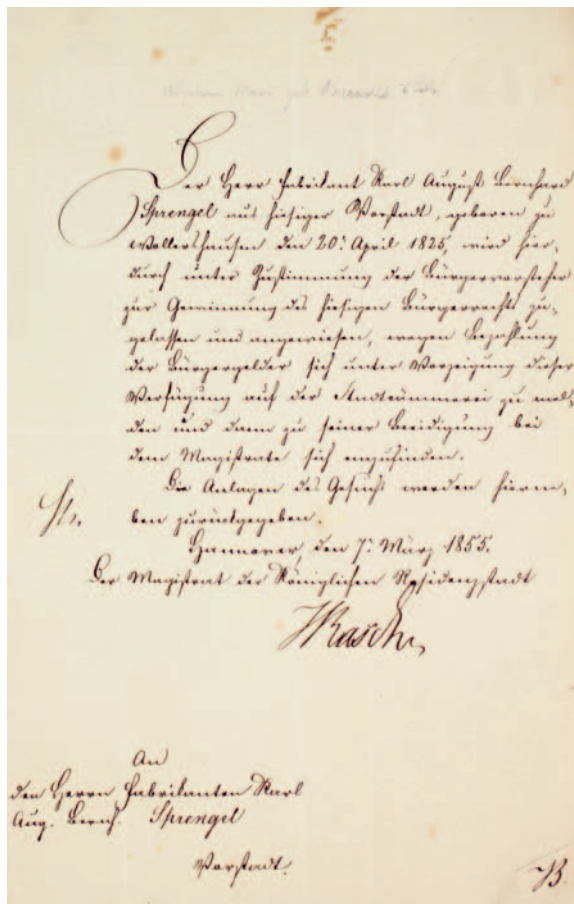 Der Herr Fabrikant Karl August Bernhard
Sprengel aus hiesiger Vorstadt, geboren zu
Wollershausen den 20t April 1825, wird hier-
durch unter Zustimmung der Bürgervorsteher
zur Gewinnung des hiesigen Bürgerrechts zu-
gelassen und angewiesen, wegen Bezahlung
der Bürgergelder sich unter Vorzeigung dieser
Verfügung auf der Stadtkämmerei zu mel-
den und dann zu seiner Beeidigung bei
dem Magistrate sich einzufinden.
Die Anlagen des Gesuchs werden hierne-
ben zurückgegeben.
Hannover, den 7t März 1855.
Der Magistrat der Königlichen Residenzstadt
Rasch
An
den Herrn Fabrikanten Karl
Aug. Bernh. Sprengel
Vorstadt.